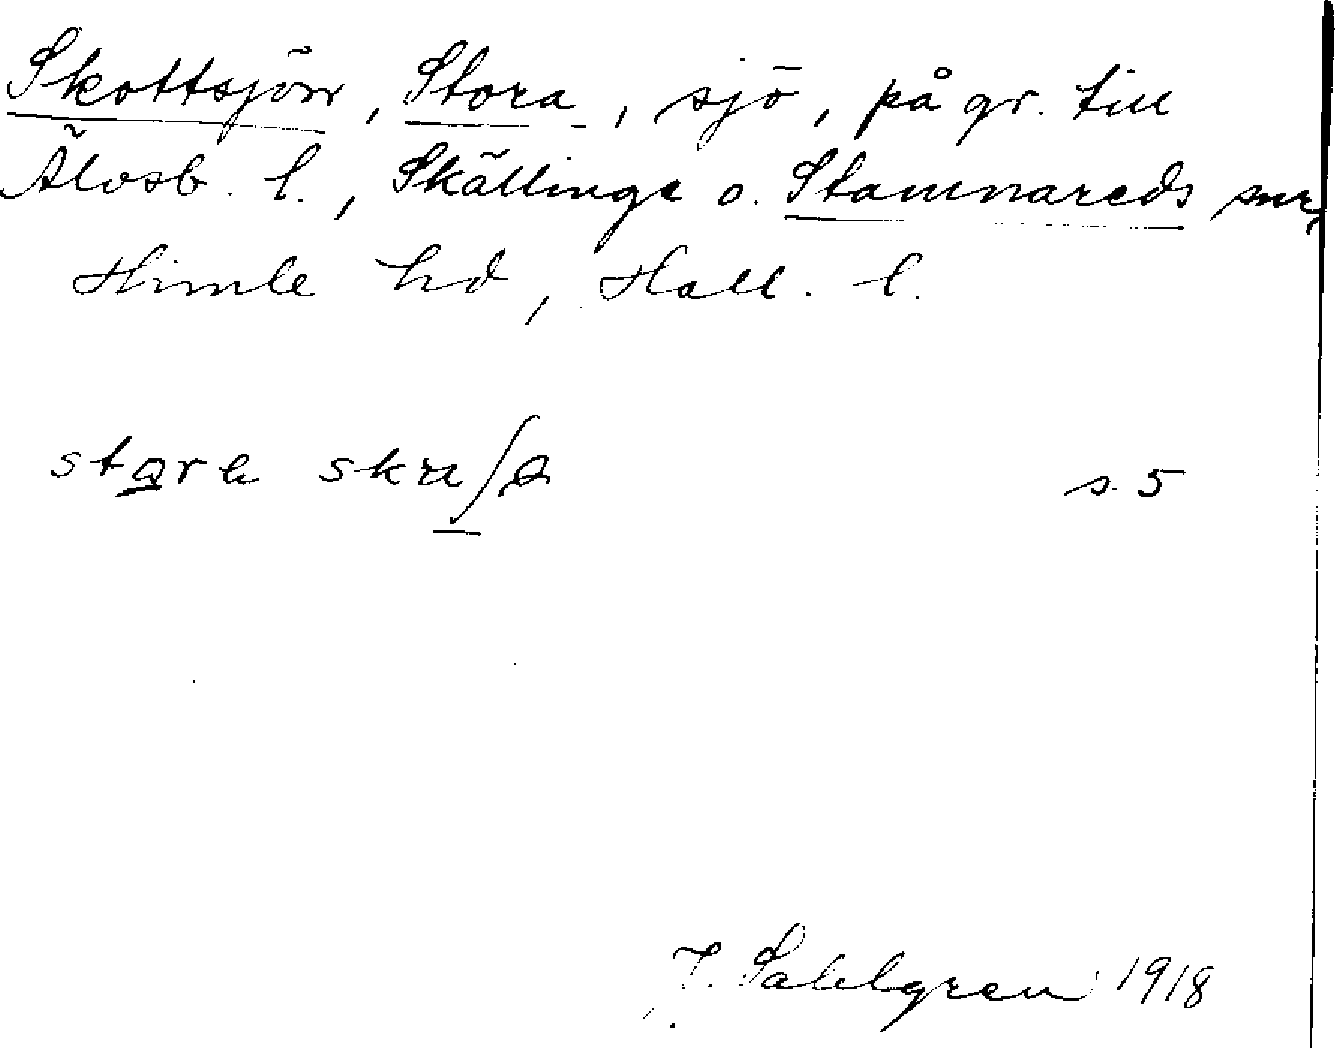 Skottsjön, Stora, sjö, på gr. till
Älvsb. l., Skällinge o. Stamnareds snr,
Himle hd, Hall. l.
s. 5
J. Sahlgren 1918